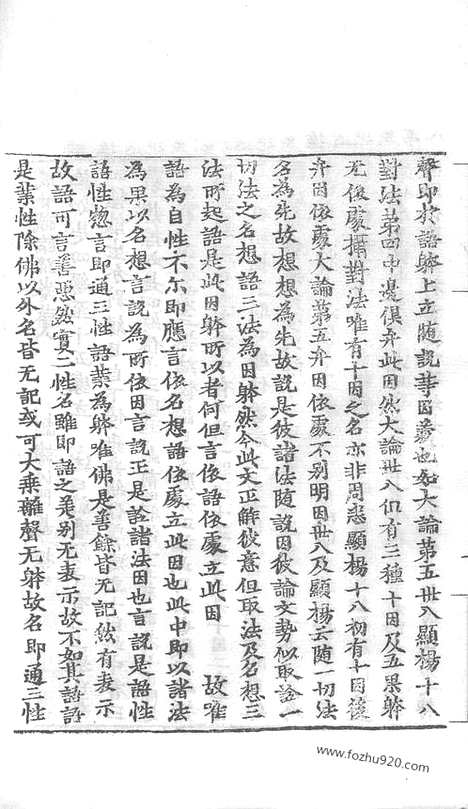 聲即於語躰上立随說等因義也如大論第五丗八顯楊十八
對法第四中邊俱弁此因然大論丗八但有三種十因及五果躰
无依處攝對法唯有十因之名亦非周悉顯楊十八初有十因後
弁因依處大論第五弁因依處不别明因丗八及顯楊云随一切法
名為先故想想為先故說是彼諸法随說因彼論文勢似取詮一
切法之名想語三法為因躰然今此文正解彼意但取法及名想三
法所起語是此因躰所以者何但言依語依處立此因 故唯
語為自性不尔即應言依名想語依處立此因也此中即以諸法
為果以名想言說為所依因言說正是詮諸法因也言說是語性
語性惣言即通三性語業為躰唯佛是善餘皆无記然有表示
故語可言善惡錐實二性名雖即語之差别无表示故不如其語語
是業性除佛以外名皆无記或可大乗離聲无躰故名即通三性
www.fozhu920.com